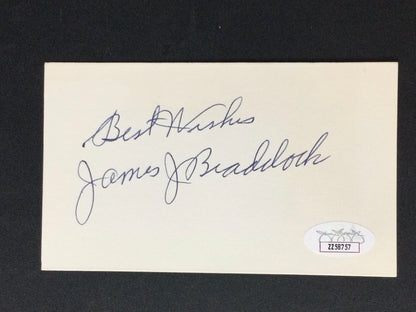 Best Wishes
James J Braddock
ZZ58757